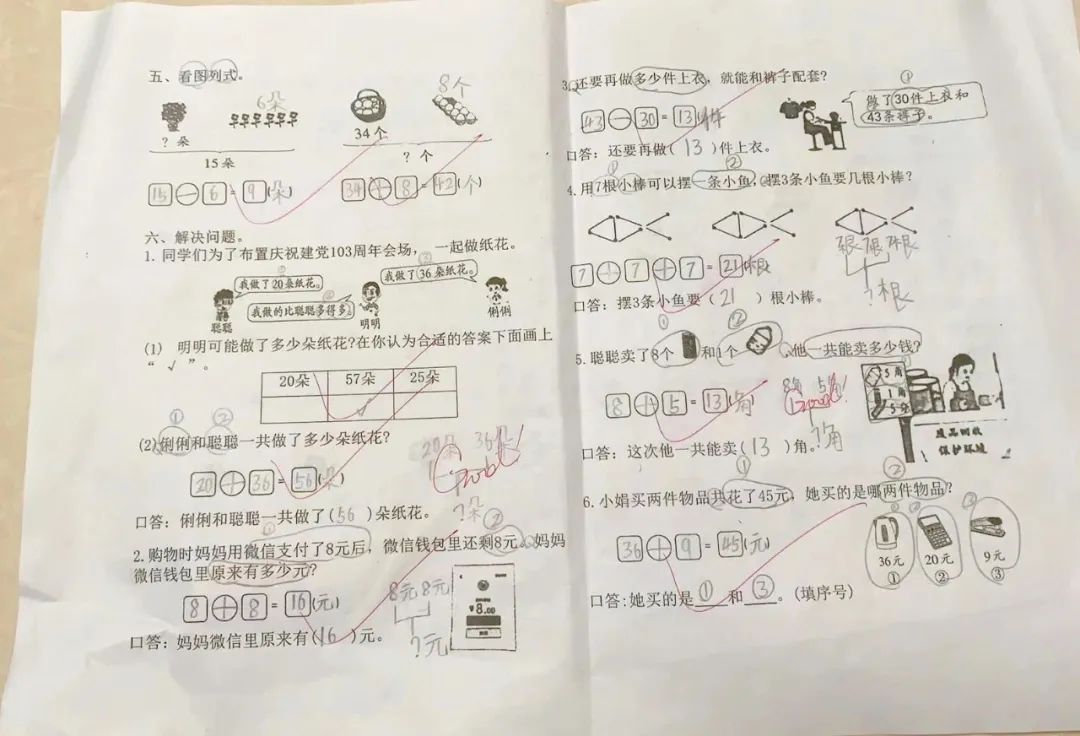 五、看图列式。
6朵
8个
? 朵
34 个
15 朵
? 个
15 - 6 = 9 (朵)
34 + 8 = 42 (个)
六、解决问题。
1. 同学们为了布置庆祝建党103周年会场, 一起做纸花。
① ② ③
我做了20朵纸花。
我做的比聪聪多得多。
我做了36朵纸花。
聪聪
明明
俐俐
(1) 明明可能做了多少朵纸花?在你认为合适的答案下面画上
“ √ ”。
20朵 57朵 25朵
✓
① ②
(2) 俐俐和聪聪一共做了多少朵纸花?
20朵 36朵
20 + 36 = 56 (朵)
?朵
口答: 俐俐和聪聪一共做了(56)朵纸花。
① ②
2. 购物时妈妈用微信支付了8元后, 微信钱包里还剩8元。妈妈
微信钱包里原来有多少元?
8元 8元
¥8.00
8 + 8 = 16 (元)
?元
口答: 妈妈微信里原来有(16)元。
3. 还要再做多少件上衣, 就能和裤子配套?
①
做了30件上衣和
43条裤子。
43 - 30 = 13 件
口答: 还要再做( 13 )件上衣。
① ②
4. 用7根小棒可以摆一条小鱼, 摆3条小鱼要几根小棒?
7根 7根 7根
7 + 7 + 7 = 21 根
?根
口答: 摆3条小鱼要( 21 )根小棒。
① ②
5. 聪聪卖了8个 和1个 , 他一共能卖多少钱?
5 角
1 角
5 分
废品回收
保护环境
8角 5角
Good!
8 + 5 = 13 角
?角
口答: 这次他一共能卖( 13 )角。
① ②
6. 小娟买两件物品共花了45元, 她买的是哪两件物品?
36 + 9 = 45 (元)
36元 20元 9元
① ② ③
口答: 她买的是 ① 和 ③ 。(填序号)